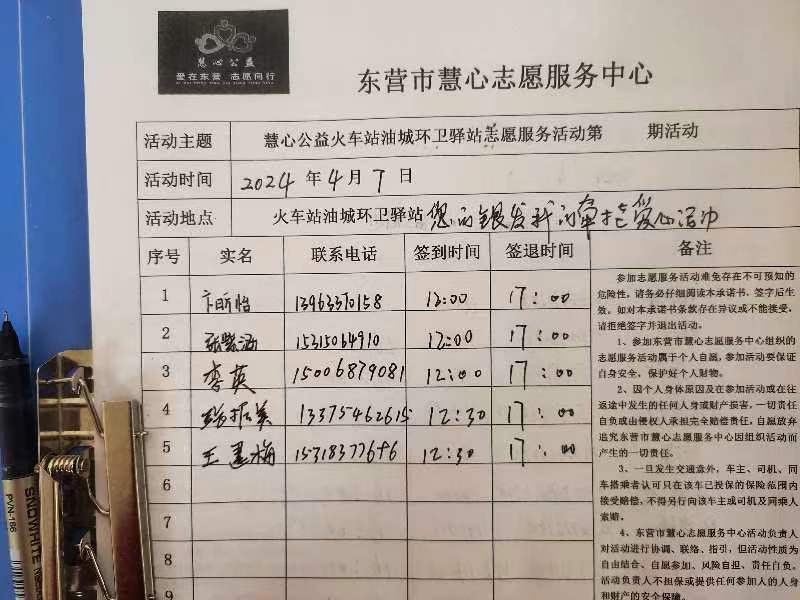 慧心公益
爱在东营 志愿同行
东营市慧心志愿服务中心
活动主题 慧心公益火车站油城环卫驿站志愿服务活动第 期活动
活动时间 2024年4月7日
活动地点 火车站油城环卫驿站 您的银发我的牵挂爱心活动
序号 实名 联系电话 签到时间 签退时间 备注
1 卞昕怡 13963370158 12:00 17:00
2 张紫涵 15315064910 12:00 17:00
3 李英 15006879081 12:00 17:00
4 张振美 13375462615 12:30 17:00
5 王建梅 15318377686 12:30 17:00
6
7
8
9
参加志愿服务活动难免存在不可预知的
危险性，请务必仔细阅读本承诺书，签字后生
效，如对本承诺书条款存在异议或不能接受，
请拒绝签字并退出活动。
1、参加东营市慧心志愿服务中心组织的
志愿服务活动属于个人自愿，参加活动要保证
自身安全，保护好个人财物。
2、因个人身体原因及在参加活动或在往
返途中发生的任何人身或财产损害，一切责任
自负或由侵权人承担完全赔偿责任，自愿放弃
追究东营市慧心志愿服务中心因组织活动而
产生的一切责任。
3、一旦发生交通意外，车主、司机、同
车搭乘者认可只在该车已投保的保险范围内
接受赔偿，不得另行向该车主或司机及同乘人
索赔。
4、东营市慧心志愿服务中心活动负责人
对活动进行协调、联络、指引，但活动性质为
自由结合、自愿参加、风险自担、责任自负。
活动负责人不担保或提供任何参加人的人身
和财产的安全保障。
PVN-166
SNOWHITE